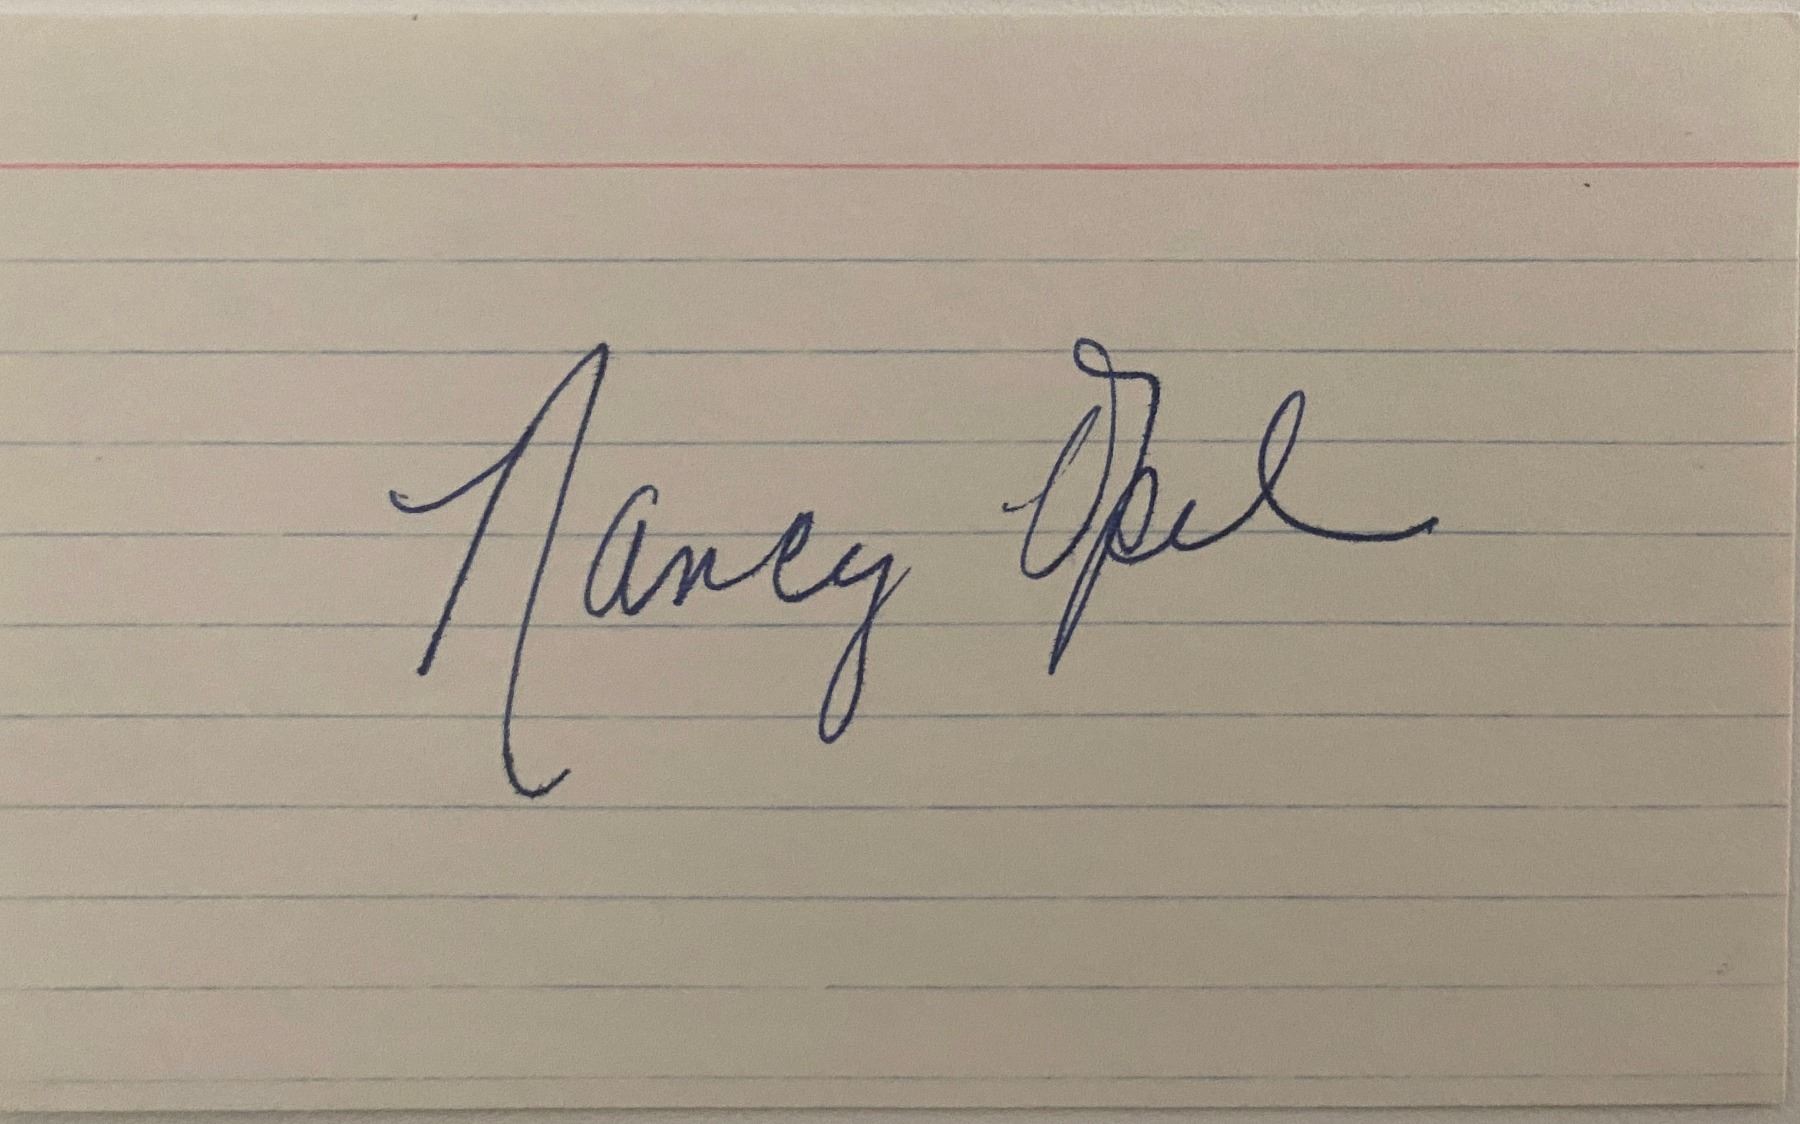 Nancy Opel